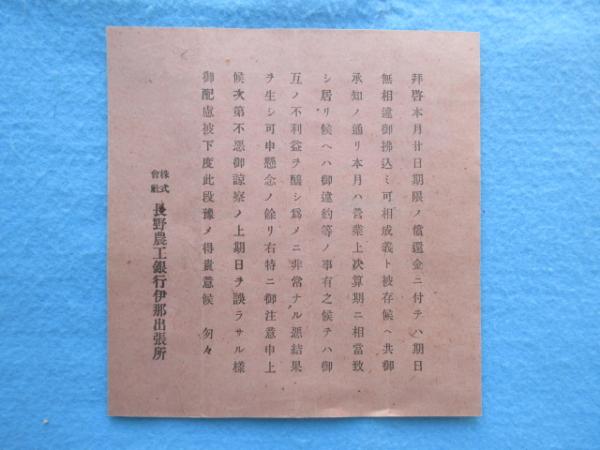 拜啓本月廿日期限ノ償還金ニ付テハ期日
無相違御拂込ミ可相成義ト被存候ヘ共御
承知ノ通リ本月ハ營業上決算期ニ相當致
シ居リ候ヘハ御違約等ノ事有之候テハ御
互ノ不利益ヲ釀シ爲メニ非常ナル惡結果
ヲ生シ可申懸念ノ餘リ右特ニ御注意申上
候次第不惡御諒察ノ上期日ヲ誤ラサル樣
御配慮被下度此段豫メ得貴意候　匆々
株式會社 長野農工銀行伊那出張所